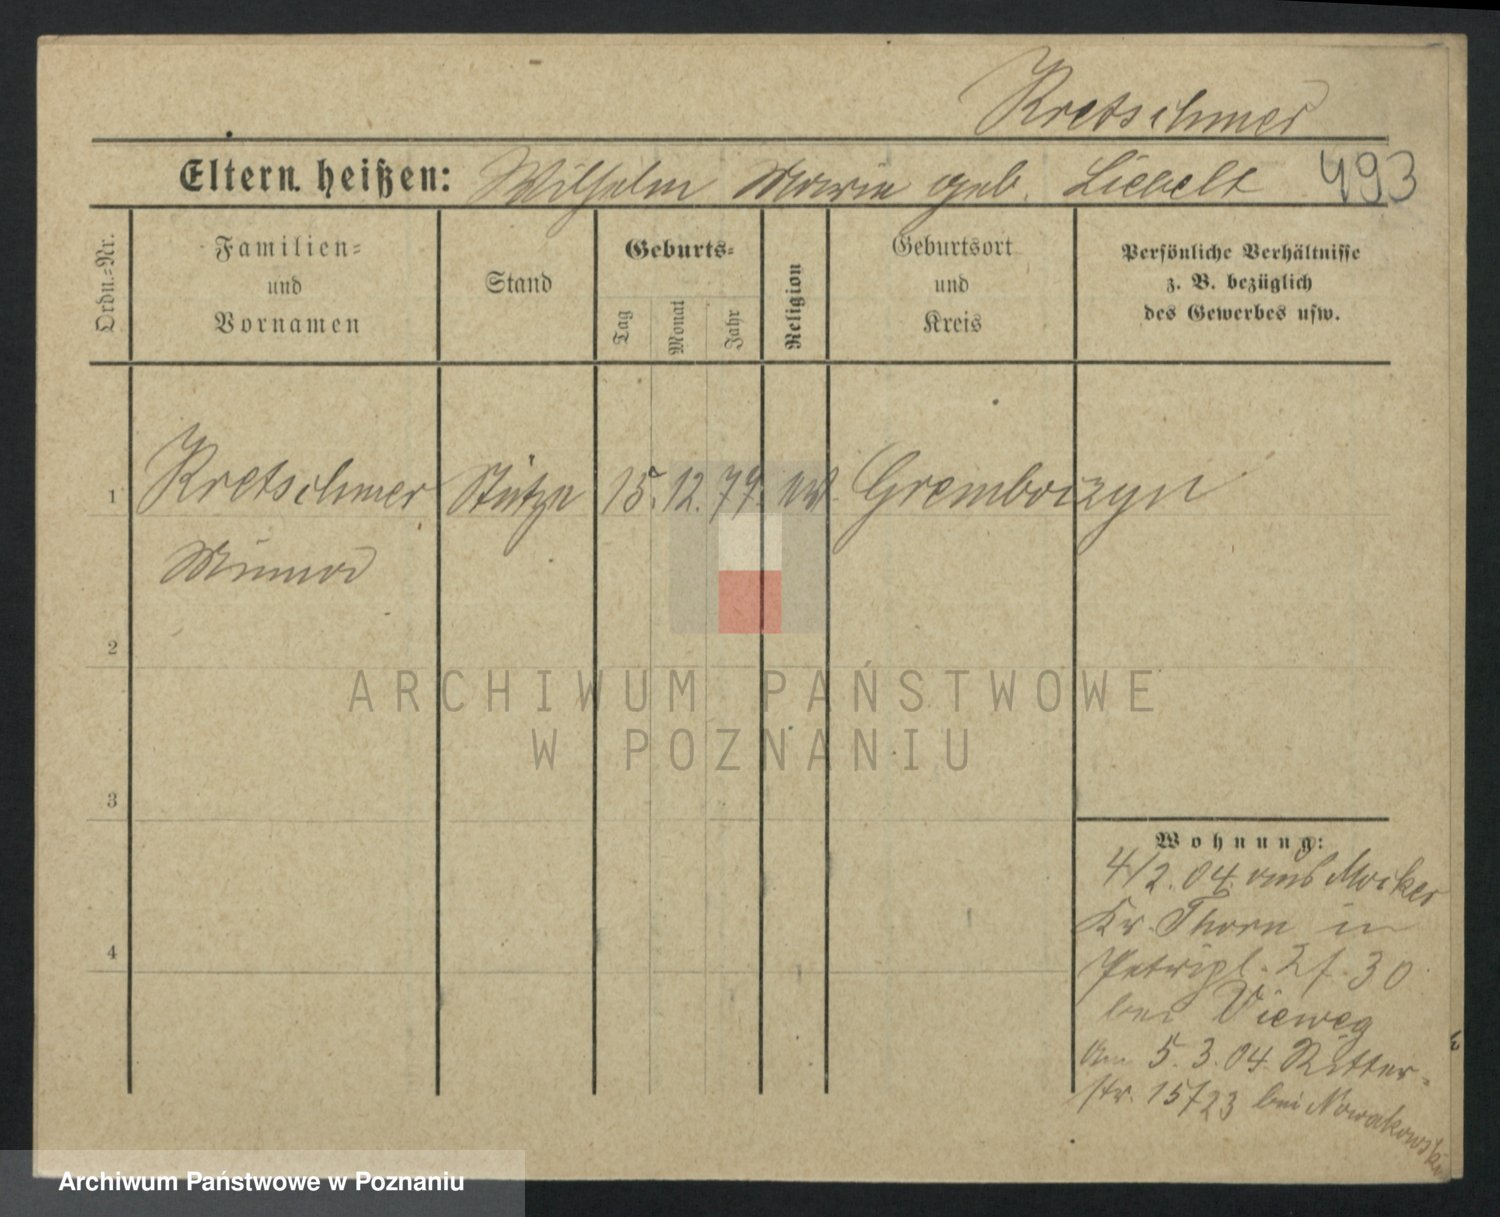 Kretschmer
Eltern heißen: Wilhelm Marie geb. Liebelt 493
Ordn.=Nr.
Familien=
und
Vornamen
Stand
Geburts=
Tag
Monat
Jahr
Religion
Geburtsort
und
Kreis
Persönliche Verhältnisse
z. B. bezüglich
des Gewerbes usw.
1 Kretschmer Stütze 15. 12. 79. ev. Gremboczyn
Minna
2
3
4
ARCHIWUM PAŃSTWOWE
W POZNANIU
Wohnung:
4/2. 04. aus Mocker
Kr. Thorn in
Petripl. 2 f. 30
bei Vieweg
Am 5. 3. 04. Ritter=
str. 15 f 23 bei Nowakowski
Archiwum Państwowe w Poznaniu